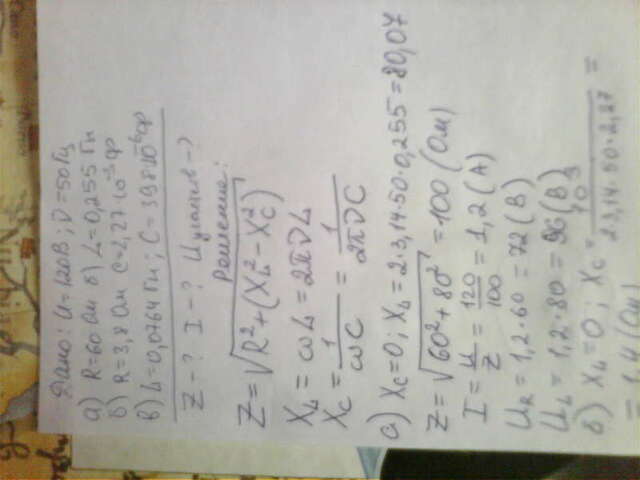 Дано: U=120В; ν=50Гц
а) R=60 Ом б) L=0,255 Гн
б) R=3,8 Ом C=2,27·10⁻³ф
в) L=0,0764 Гн; C=39,8·10⁻⁶ф
Z-? I-? Uцепив-?
Решение:
Z=√R²+(X_L²-X_C²)
X_L=ωL=2πνL
X_C=1/ωC=1/2πνC
а) X_C=0; X_L=2·3,14·50·0,255=80,07
Z=√60²+80²=100 (Ом)
I=U/Z=120/100=1,2(А)
U_R=1,2·60=72(В)
U_L=1,2·80=96(В)
б) X_L=0; X_C=10³/23,14·50·2,27=
=1,4(Ом)